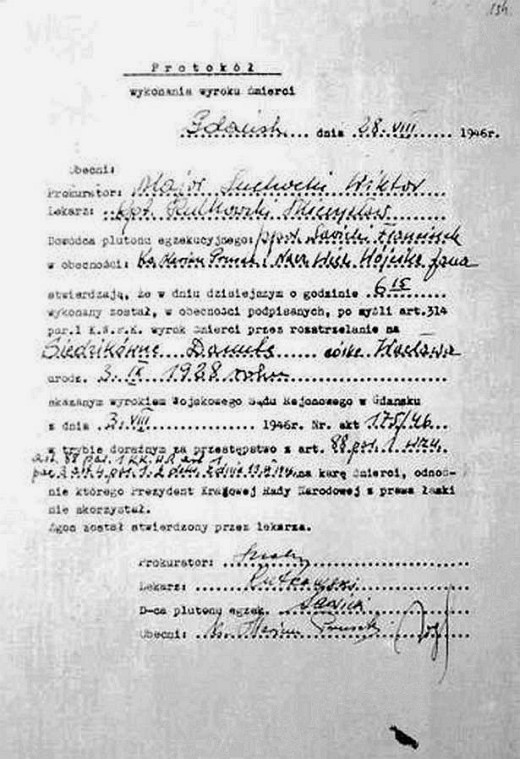 134
Protokół
wykonania wyroku śmierci
Gdańsk dnia 28 VIII 1946r.
Obecni:
Prokurator: Major Suchocki Wiktor
Lekarz: kpt. Rutkowski Mieczysław
Dowódca plutonu egzekucyjnego: ppor Sawicki Franciszek
w obecności: Ks. Marian Prusak i Nacz. Więz. Wójcik Jana
stwierdzają, że w dniu dzisiejszym o godzinie 6 15
wykonany został, w obecności podpisanych, po myśli art.314
par.1 K.W.P.K. wyrok śmierci przez rozstrzelanie na
Siedzikównę Danutę córkę Wacława
urodz. 3 IX 1928 roku
skazanym wyrokiem Wojskowego Sądu Rejonowego w Gdańsku
z dnia 3. VIII 1946r. Nr. akt 175/46
w trybie doraźnym za przestępstwo z art. 88 par. 1
art. 88 par. 1 KK.W.P. art. 1
na karę śmierci, odnoś-
nie którego Prezydent Krajowej Rady Narodowej z prawa łaski
nie skorzystał.
Zgon został stwierdzony przez lekarza.
Prokurator:
Lekarz: Rutkowski
D-ca plutonu egzek. Sawicki
Obecni: Ks. Marian Prusak